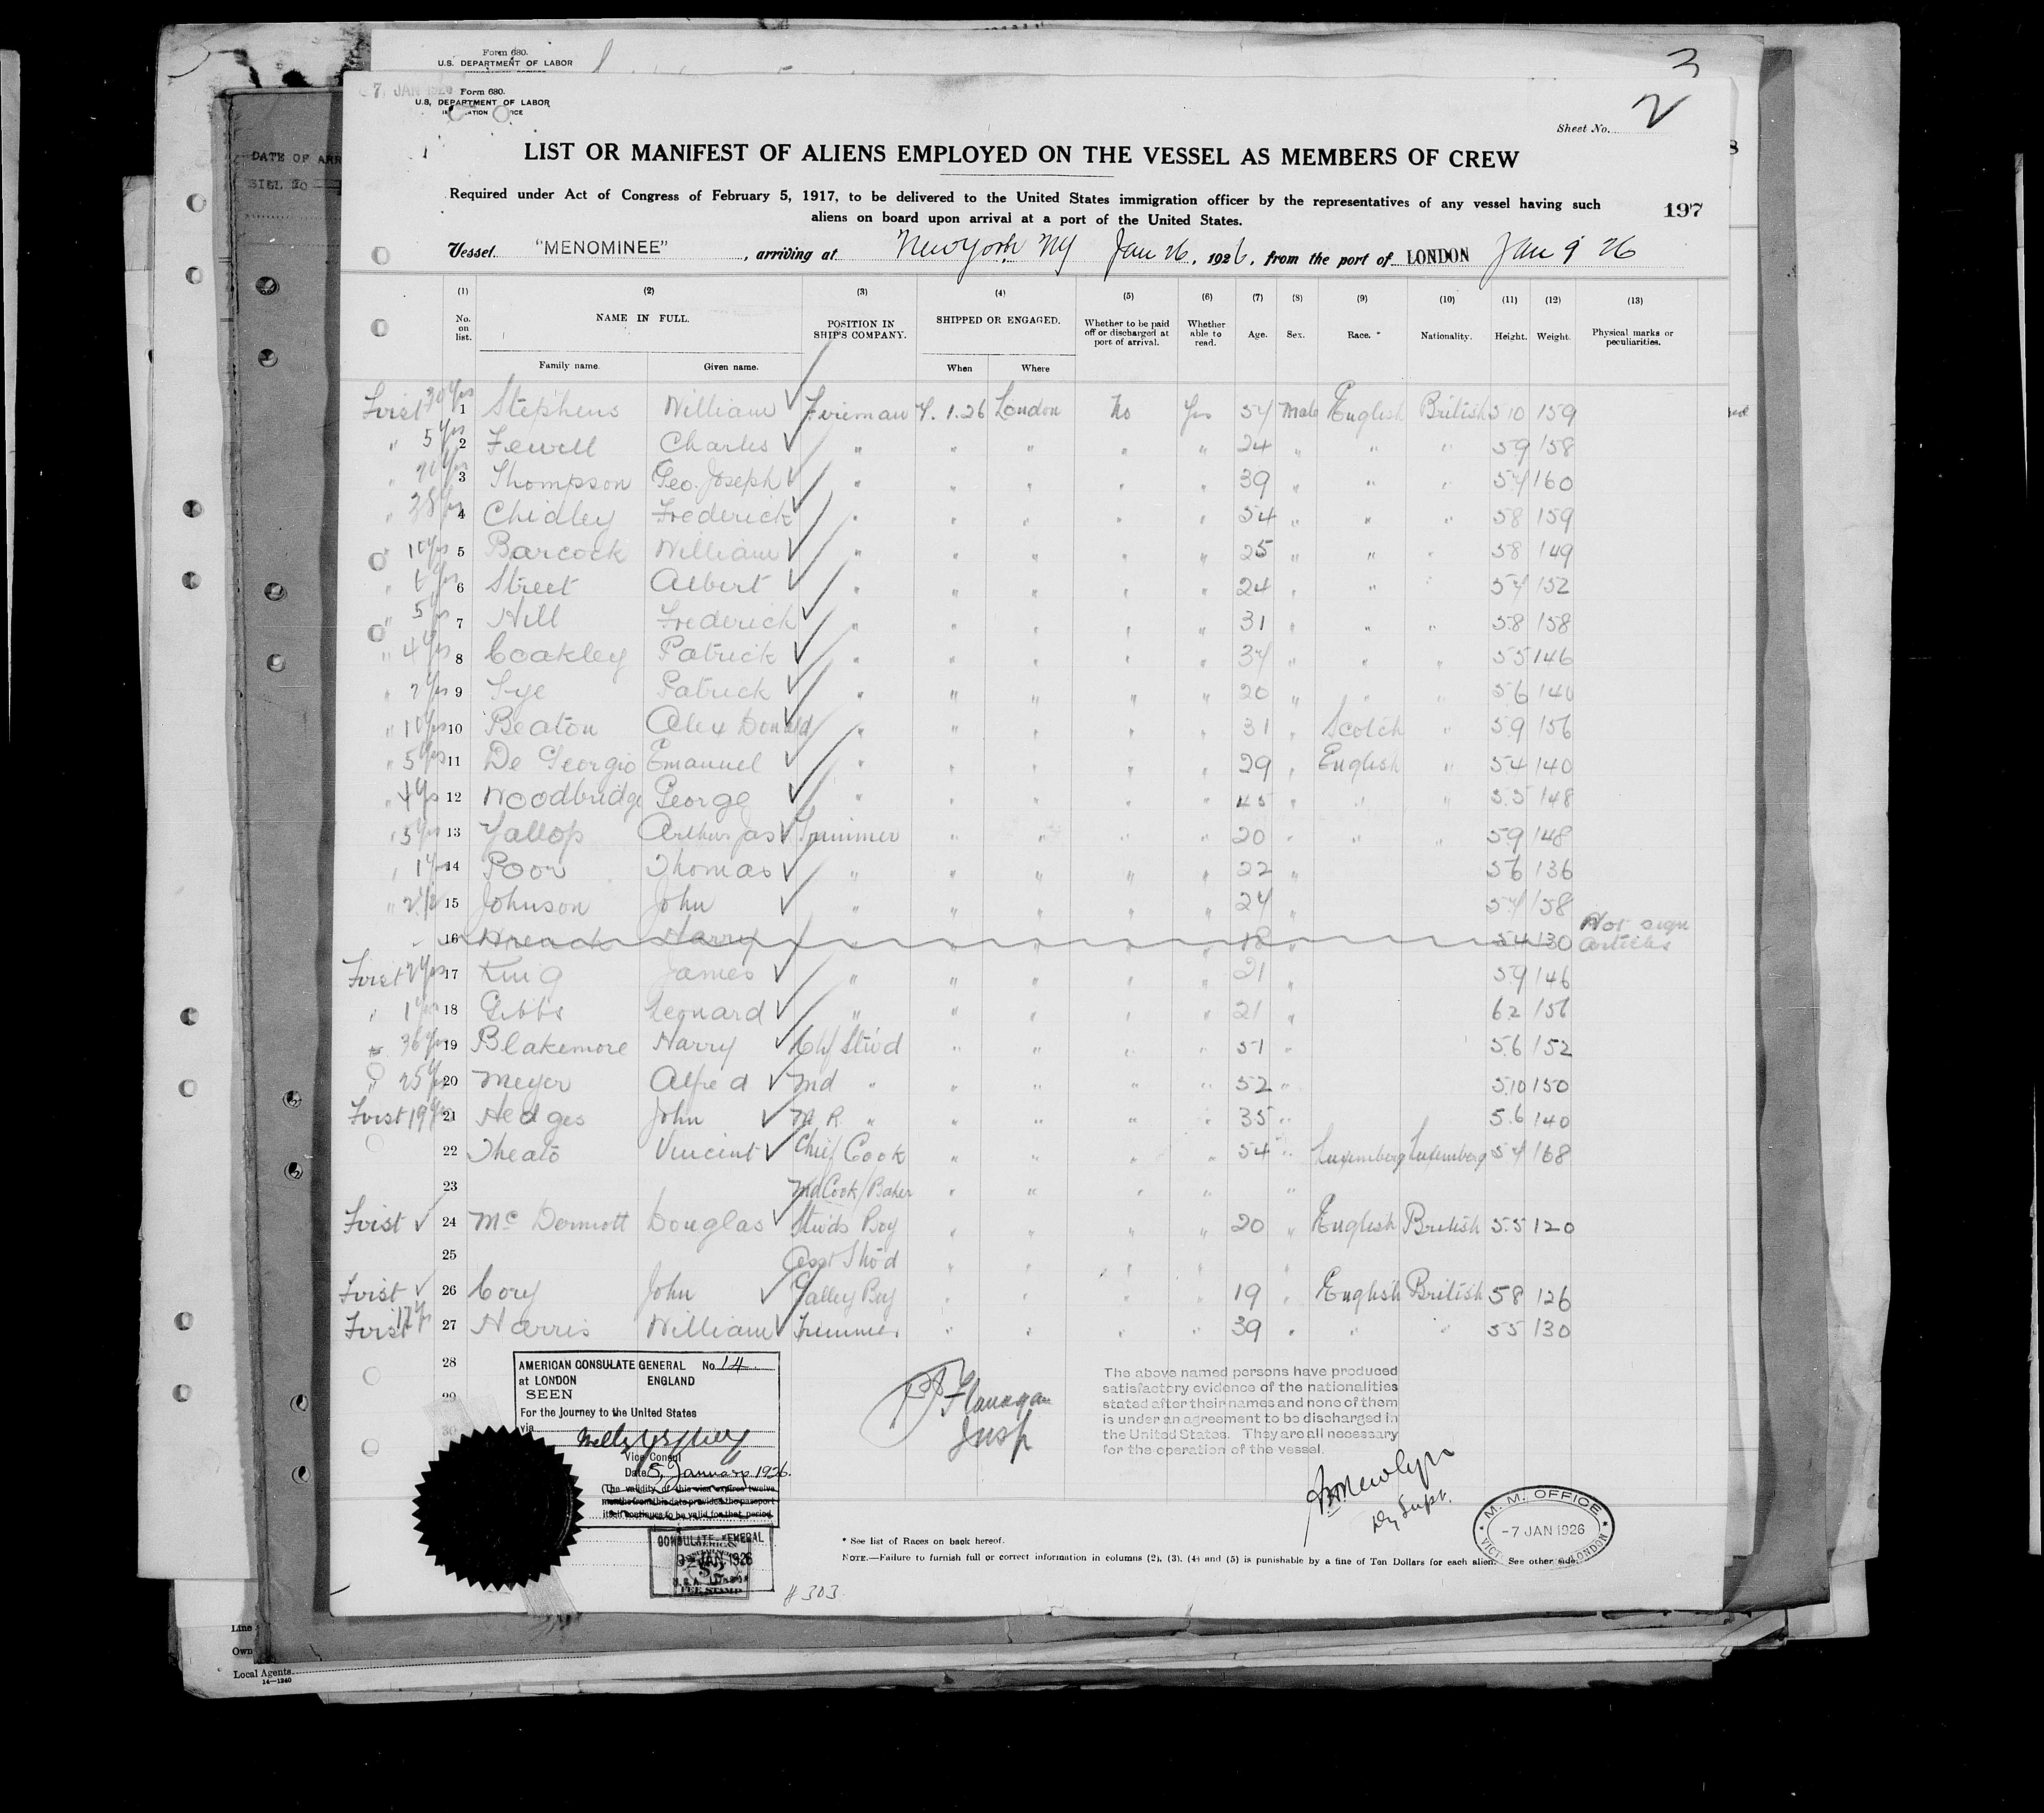 Form 680.
U.S. DEPARTMENT OF LABOR
3
7 JAN 1926 Form 680.
U.S. DEPARTMENT OF LABOR
Sheet No. 2
DATE OF ARR
LIST OR MANIFEST OF ALIENS EMPLOYED ON THE VESSEL AS MEMBERS OF CREW
Required under Act of Congress of February 5, 1917, to be delivered to the United States immigration officer by the representatives of any vessel having such
aliens on board upon arrival at a port of the United States.
197
Vessel "MENOMINEE", arriving at New York NY Jan 26, 1926, from the port of LONDON Jan 9 26
(1) (2) (3) (4) (5) (6) (7) (8) (9) (10) (11) (12) (13)
No. on list. NAME IN FULL. POSITION IN SHIP'S COMPANY. SHIPPED OR ENGAGED. Whether to be paid off or discharged at port of arrival. Whether able to read. Age. Sex. Race.* Nationality. Height. Weight. Physical marks or peculiarities.
Family name. Given name. When Where
First 30 yrs 1 Stephens William Fireman 7.1.26 London No Yes 57 Male English British 5 10 159
" 5 yrs 2 Fewell Charles " " " " " 24 " " " 5 9 158
" 3 Thompson Geo. Joseph " " " " " 39 " " " 5 7 160
" 38 yrs 4 Chidley Frederick " " " " " 54 " " " 5 8 159
" 10 yrs 5 Barcock William " " " " " 25 " " " 5 8 149
" 6 yrs 6 Street Albert " " " " " 24 " " " 5 7 152
" 5 yrs 7 Hill Frederick " " " " " 31 " " " 5 8 158
" 4 yrs 8 Coakley Patrick " " " " " 37 " " " 5 5 146
" 2 yrs 9 Tye Patrick " " " " " 20 " " " 5 6 140
" 10 yrs 10 Beaton Alex Donald " " " " " 31 " Scotch " 5 9 156
" 5 yrs 11 De Georgio Emanuel " " " " " 29 " English " 5 4 140
" 4 yrs 12 Woodbridge George " " " " " 45 " " " 5 5 148
" 3 yrs 13 Yallop Arthur Jas Trimmer " " " " 20 " " " 5 9 148
" 1 yr 14 Poor Thomas " " " " " 22 " 5 6 136
" 2 1/2 15 Johnson John " " " " " 27 " 5 7 158
16 Harry " " " " " 18 " 5 4 130 Not sign articles
First 2 yrs 17 King James " " " " " 21 " 5 9 146
" 1 yr 18 Gibbs Leonard " " " " " 21 " 6 2 156
" 36 yrs 19 Blakemore Harry Chf Stwd " " " " 51 " 5 6 152
" 25 yrs 20 Meyer Alfred 2nd " " " " " 52 " 5 10 150
First 19 yrs 21 Hedges John M. R. " " " " " 35 " 5 6 140
22 Theato Vincent Chief Cook " " " " 54 " Luxemberg Luxemberg 5 7 168
23 2nd Cook/Baker " " " " "
First 24 McDermott Douglas Stwds Boy " " " " 20 " English British 5 5 120
25 Asst " " " "
First 26 Cory John Galley Boy " " " " 19 " English British 5 8 126
First 17 yr 27 Harris William Trimmer " " " " 39 " " " 5 5 130
28
29
30
AMERICAN CONSULATE GENERAL No 14
at LONDON ENGLAND
SEEN
For the Journey to the United States
via
Vice Consul
Date 5 January 1926.
(The validity of this visa expires twelve
months from this date provided the passport
itself continues to be valid for that period.
Flanagan
Insp
The above named persons have produced
satisfactory evidence of the nationalities
stated after their names and none of them
is under an agreement to be discharged in
the United States. They are all necessary
for the operation of the vessel.
Dy Supt.
M. M. OFFICE
-7 JAN 1926
LONDON
CONSULATE GENERAL
JAN 1926
FEE STAMP
* See list of Races on back hereof.
NOTE.—Failure to furnish full or correct information in columns (2), (3), (4) and (5) is punishable by a fine of Ten Dollars for each alien. See other side.
# 303
Line
Own
Local Agents
14—1240